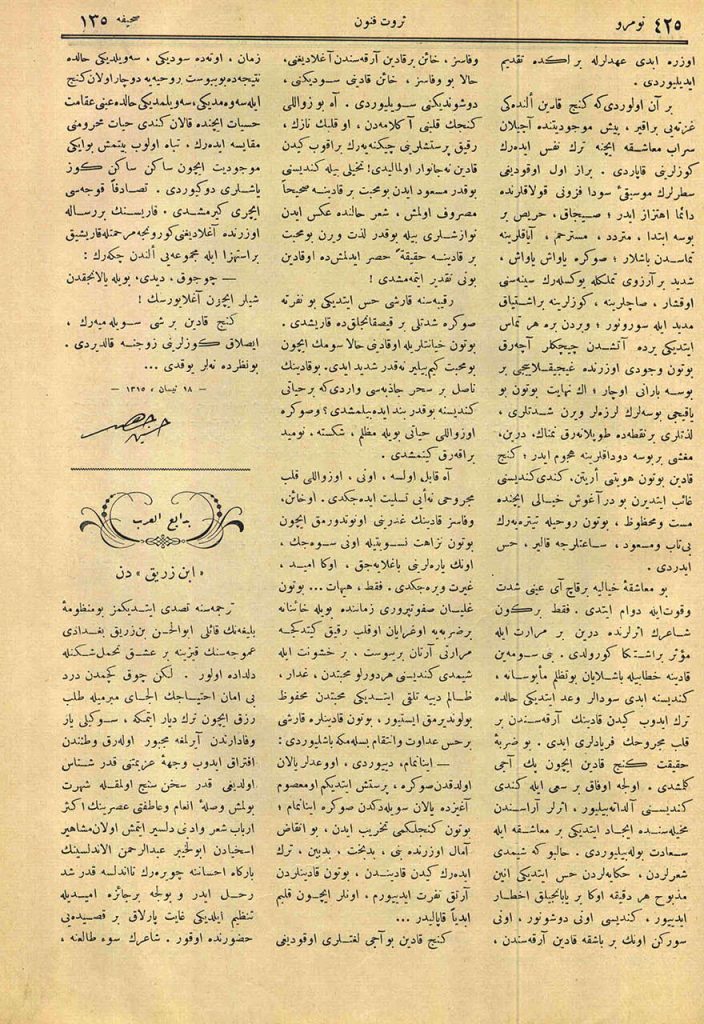 ٤٢٥ نومرو
ثروت فنون
صحیفه ١٣٥
اوزره ایدی عهدلرله براكده تقدیم
ایدیلیوردی .
بر آن اولوردی كه كنج قادین ألنده كی
غزته یی براقیر ، پیش موجودیتنده آچیلان
سراب معاشقه ایچنه ترك نفس ایده رك
كوزلرینی قاپاردی . براز اول اوقودیغی
سطرلرك موسیقئ سودا فزونی قولاقلرنده
دائما اهتزاز ایدر ؛ صیجاق ، حریص بر
بوسه ابتدا ، متردد ، مسترحم ، آیاقلرینه
تماسدن باشلار ؛ صوكره یاواش یاواش ،
شدید بر آرزوی تملكله یوكسله رك سینه سنی
اوقشار ، صاچلرینه ، كوزلرینه بر اشتیاق
مدید ایله سورونور ؛ ویردن بره هر تماس
ایتدیكی یرده آتشدن چیچكلر آچه رق
بوتون وجودی اوزرنده غیجیقلاییجی بر
بوسه بارانی اوچار ؛ اك نهایت بوتون بو
یاقیجی بوسه لرك لرزه لر ویرن شدتلری ،
لذتلری بر نقطه ده طوپلانه رق نمناك ، درین ،
مغشی بر بوسه دوداقلرینه هجوم ایدر ؛ كنج
قادین بوتون هویتنی أریتن ، كندی كندیسنی
غائب ایتدیرن بو در آغوش خیالی ایچنده
مست ومحظوظ ، بوتون روحیله تیتره یه رك
بی تاب ومسعود ، ساعتلرجه قالیر ، حس
ایدردی .
بو معاشقۀ خیالیه برقاچ آی عینی شدت
وقوت ایله دوام ایتدی . فقط بر كون
شاعرك اثرلرنده درین بر مرارت ایله
مؤثر بر اشتكا كورولدی . بنی سومه ین
قادینه خطابیله باشلایان بو تظلم مأیوسانه ،
كندیسنه ابدی سودالر وعد ایتدیكی حالده
ترك ایدوب كیدن قادینك آرقه سندن بر
قلب مجروحك فریادلری ایدی . بو ضربۀ
حقیقت كنج قادین ایچون پك آجی
كلمشدی . اولجه اوفاق بر سعی ایله كندی
كندیسنی آلداته بیلیور ، اثرلر آراسندن
مخیله سنده ایجاد ایتدیكی بر معاشقه ایله
سعادت بوله بیلیوردی . حالبو كه شیمدی
شعرلردن ، حكایه لردن حس ایتدیكی انین
مذبوح هر دقیقه اوكا بر یابانجیلق اخطار
ایدییور ، كندیسی اونی دوشونور ، اونی
سوركن اونك بر باشقه قادین آرقه سندن ،
وفاسز ، خائن بر قادین آرقه سندن آغلادیغنی ،
حالا بو وفاسز ، خائن قادینی سودیكنی ،
دوشوندیكنی سویلیوردی . آه بو زواللی
كنجك قلبنی آكلامه دن ، او قلبك نازك ،
رقیق پرستشلرینی چیكنه یه رك براقوب كیدن
قادین نه جانوار اولمالیدی ! تخیلی بیله كندیسنی
بو قدر مسعود ایدن بو محبت بر قادینه صحیحاً
مصروف اولمش ، شعر حالنده عكس ایدن
نوازشلری بیله بو قدر لذت ویرن بو محبت
بر قادینـه حقیقةً حصر ایدلمش ده او قادین
بونی تقدیر ایتمه مشدی !
رقیبه سنه قارشی حس ایتدیكی بو نفرته
صوكره شدتلی بر قیصقانجلق ده قاریشدی .
بوتون خیانتلریله او قادینی حالا سومك ایچون
بو محبت كیم بیلیر نه قدر شدید ایدی . بو قادینك
ناصل بر سحر جاذبه سی واردی كه بر حیاتی
كندیسنه بو قدر بند ایده بیلمشدی ؟ وصوكره
او زواللی حیاتی بویله مظلم ، شكسته ، نومید
براقه رق كیتمشدی .
آه قابل اولسه ، اونی ، او زواللی قلب
مجروحی نه أیی تسلیت ایده جكدی . او خائن ،
وفاسز قادینك غدرینی اونوتدورمق ایچون
بوتون نزاهت نسویتیله اونی سوه جك ،
اونك یاره لرینی باغلایه جق ، اوكا امید ،
غیرت ویره جكدی . فقط ، هیهات ... بوتون
غلیان صفوتپروری زماننده بویله خائنانه
بر ضربه یه اوغرایان او قلب رقیق كیتدكجه
مرارتی آرتان بر یوست ، بر خشونت ایله
شیمدی كندیسنی هر دورلو محبتدن ، غدار ،
ظالم دییه تلقی ایتدیكی محبتدن محفوظ
بولوندیرمق ایستیور ، بوتون قادینلره قارشی
بر حس عداوت وانتقام بسله مكه باشلیوردی :
— اینانمام ، دییوردی ، او وعدلر یالان
اولدقدن صوكره ، پرستش ایتدیكم او معصوم
آغیزده یالان سویله دكدن صوكره اینانمام ؛
بوتون كنجلكمی تخریب ایدن ، بو انقاض
آمال اوزرنده بنی ، بدبخت ، بدبین ، ترك
ایده رك كیدن قادیندن ، بوتون قادینلردن
آرتق نفرت ایدییورم . اونلر ایچون قلبم
ابدیاً قاپالیدر ...
كنج قادین بو آجی لغتلری اوقودیغی
زمان ، اوته ده سودیكی ، سه ویلدیكی حالده
نتیجه ده بو یبوست روحیه یه دوچار اولان كنج
ایله سوه مدیكی ، سه ویلمدیكی حالده عینی عقامت
حسیات ایچنده قالان كندی حیات محرومنی
مقایسه ایده رك ، تباه اولوب بیتمش بو ایكی
موجودیت ایچون ساكن ساكن كوز
یاشلری دوكوردی . تصادفاً قوجه سی
ایچری كیرمشدی . قاریسنك بر رساله
اوزرنده آغلادیغنی كورونجه مرحمتله قاریشیق
بر استهزا ایله مجموعه یی ألندن چكه رك :
— چوجوق ، دیدی ، بویله یالانجقدن
شیلر ایچون آغلانیورسك !
كنج قادین بر شی سویله میه رك ،
ایصلاق كوزلرینی زوجنه قالدیردی .
بو نظرده نه لر یوقدی ...
— ١٨ نیسان ، ١٣١٥ —
بدایع العرب
« ابن زریق » دن
ترجمه سنه تصدی ایتدیكمز بو منظومۀ
بلیغه نك قائلی ابوالحسن بن زریق بغدادی
عموجه سنك قیزینه بر عشق تحمل شكنله
دلداده اولور . لكن چوق كچمدن درد
بی امان احتیاجك الجای مبرمیله طلب
رزق ایچون ترك دیار ایتمكه ، سوكیلی یار
وفادارندن آیرلمغه مجبور اوله رق وطنندن
افتراق ایدوب وجهۀ عزیمتنی قدر شناس
اولدیغی قدر سخن سنج اولمقله شهرت
بولمش وصلۀ انعام وعاطفتی عصرینك اكثر
ارباب شعر وادبنی دلسیر ایتمش اولان مشاهیر
اسخیادن ابوالخیبر عبدالرحمن الاندلسینك
بارگاه احساننه چویره رك تا اندلسه قدر شد
رحل ایدر و بولجه بر جائزه امیدیله
تنظیم ایلدیكی غایت پارلاق بر قصیده یی
حضورنده اوقور . شاعرك سوء طالعنه ،